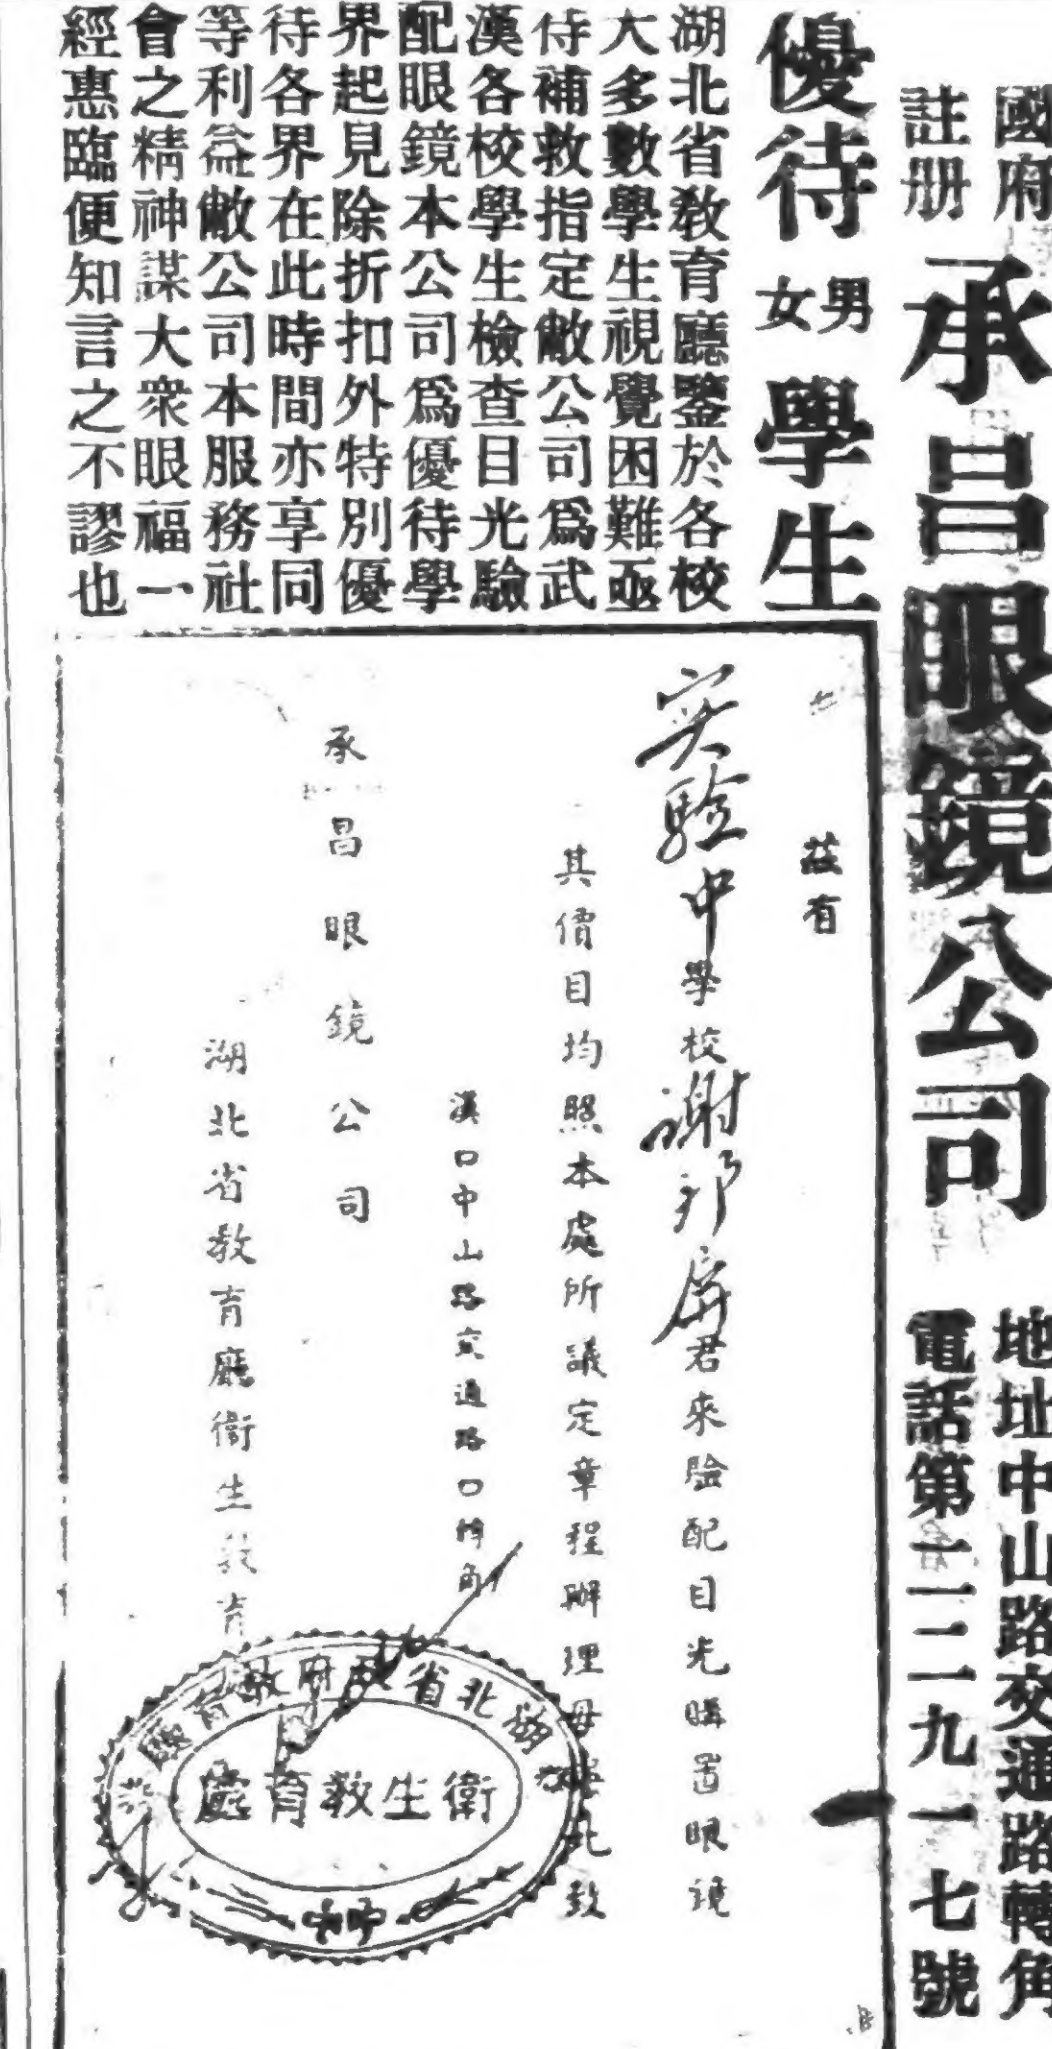 國府
註册
承昌眼鏡公司
地址中山路交通路轉角
電話第二二二九一七號
優待男女學生
湖北省教育廳鑒於各校
大多數學生視覺困難亟
待補救指定敝公司爲武
漢各校學生檢查目光驗
配眼鏡本公司爲優待學
界起見除折扣外特別優
待各界在此時間亦享同
等利益敝公司本服務社
會之精神謀大衆眼福一
經惠臨便知言之不謬也
茲有
实驗中學校謝邦屏君來驗配目光購置眼鏡
其價目均照本處所議定章程辦理毋 此致
漢口中山路交通路口轉角
承昌眼鏡公司
湖北省教育廳衛生教育
湖北省政府教育廳
衛生教育處